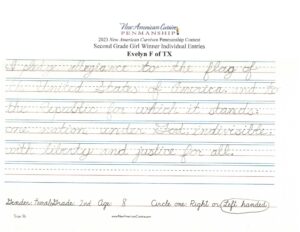 New American Cursive
PENMANSHIP
2023 New American Cursive Penmanship Contest
Second Grade Girl Winner Individual Entries
Evelyn F of TX
I pledge allegiance to the flag of
the United States of America and to
the Republic for which it stands:
one nation under God, indivisible,
with liberty and justice for all.
Gender: Female Grade: 2nd Age: 8 Circle one: Right or Left handed
www.NewAmericanCursive.com